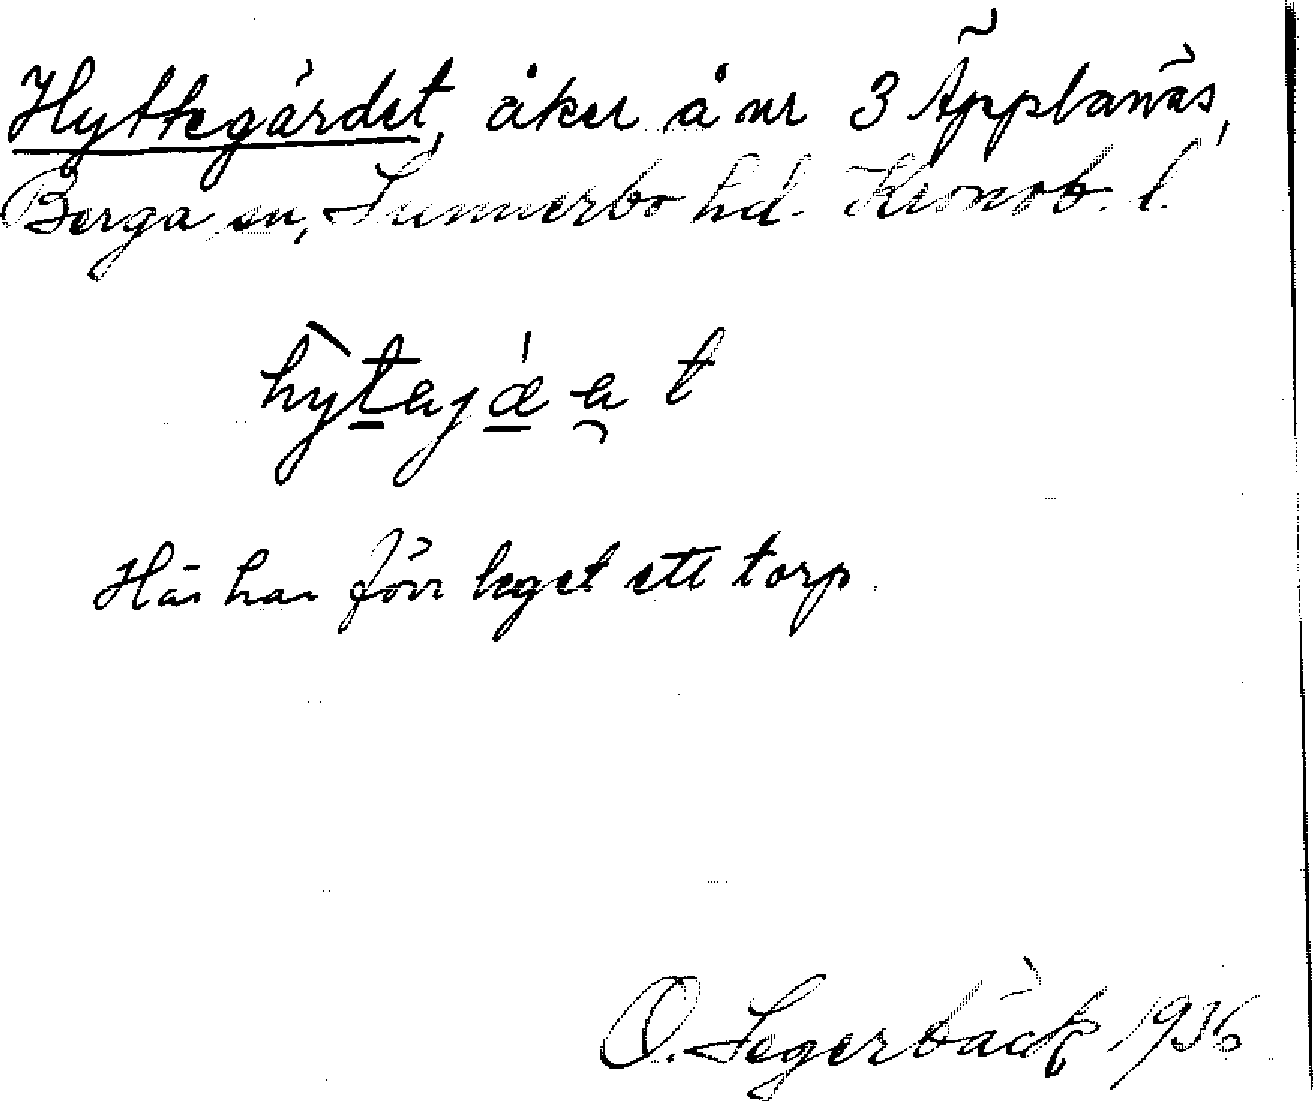 Hyttegärdet, åker å nr 3 Äpplanäs,
Berga sn, Sunnerbo hd. Kronob. l.
Här har förr legat ett torp.
O. Segerbäck 1936